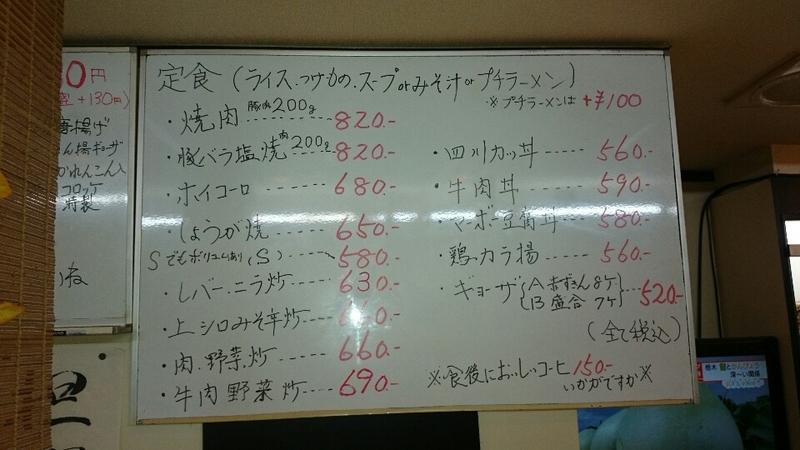 0円
+130円)
唐揚げ
ん揚ギョーザ
かれんこん入
コロッケ
特製
定食(ライス.つけもの.スープorみそ汁orプチラーメン)
※プチラーメンは+¥100
・焼肉 豚肉200g 820.-
・豚バラ塩焼 肉200g 820.-
・ホイコーロ 680.-
・しょうが焼 650.-
Sでもボリュームあり(S) 580.-
・レバー.ニラ炒 630.-
・上シロみそ辛炒
・肉.野菜.炒 660.-
・牛肉野菜炒 690.-
・四川カツ丼 560.-
・牛肉丼 590.-
・マーボ豆腐丼 580.-
・鶏.カラ揚 560.-
・ギョーザ{A 赤ずきん8ケ 520.-
{B 盛合 7ケ
(全て税込)
※食後においしいコーヒ 150.-
いかがですか※
栃木
深〜い関係